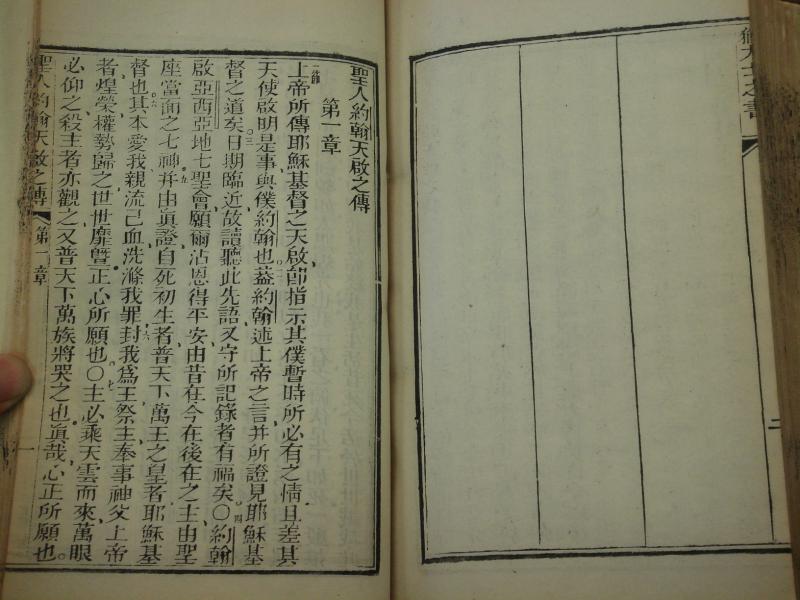 猶大士之書
二
聖人約翰天啟之傳
第一章
一節上帝所傳耶穌基督之天啟節指示其僕暫時所必有之情且差其
天使啟明是事與僕約翰也蓋約翰述上帝之言并所證見耶穌基
督之道矣日期臨近故讀聽此先語又守所記錄者有福矣〇約翰
啟亞西亞地七聖會願爾沾恩得平安由昔在今在後在之主由聖
座當面之七神并由真證自死初生者普天下萬王之皇者耶穌基
督也其本愛我親流己血洗滌我罪封我為王祭主奉事神父上帝
者煌榮權勢歸之世世靡暨正心所願也〇主必乘天雲而來萬眼
必仰之殺主者亦觀之又普天下萬族將哭之也真哉心正所願也
聖人約翰天啟之傳 第一章 一